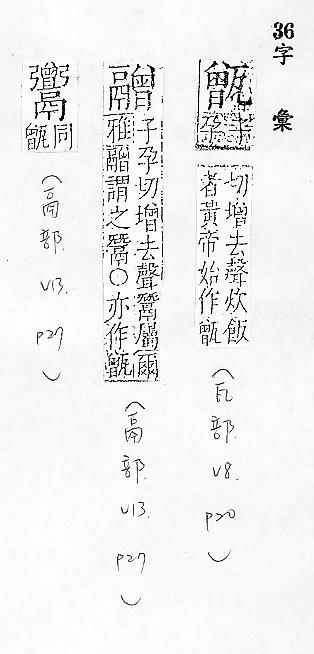 36字 彙
甑
切增去聲炊飯
者黃帝始作甑
(瓦部. V8. P20)
䰝
子孕切增去聲鬵屬爾
雅䰝謂之鬵○亦作甑
(鬲部. V13. P27)
同
甑
(鬲部. V13. P27)